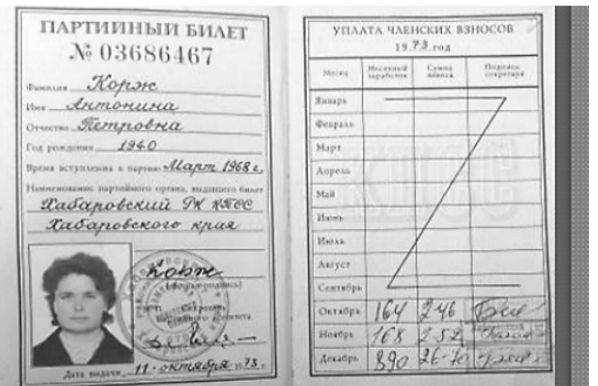 ПАРТИЙНЫЙ БИЛЕТ
№ 03686467
Фамилия Корж
Имя Антонина
Отчество Петровна
Год рождения 1940
Время вступления в партию Март 1968 г.
Наименование партийного органа, выдавшего билет
Хабаровский РК КПСС
Хабаровского края
Корж
(личная подпись)
Дата выдачи 11 октября 73 г.
УПЛАТА ЧЛЕНСКИХ ВЗНОСОВ
1973 год
Месяц Месячный заработок Сумма взноса Подпись секретаря
Январь
Февраль
Март
Апрель
Май
Июнь
Июль
Август
Сентябрь
Октябрь 164 2-46
Ноябрь 168 2-52
Декабрь 890 26-70
КПСС